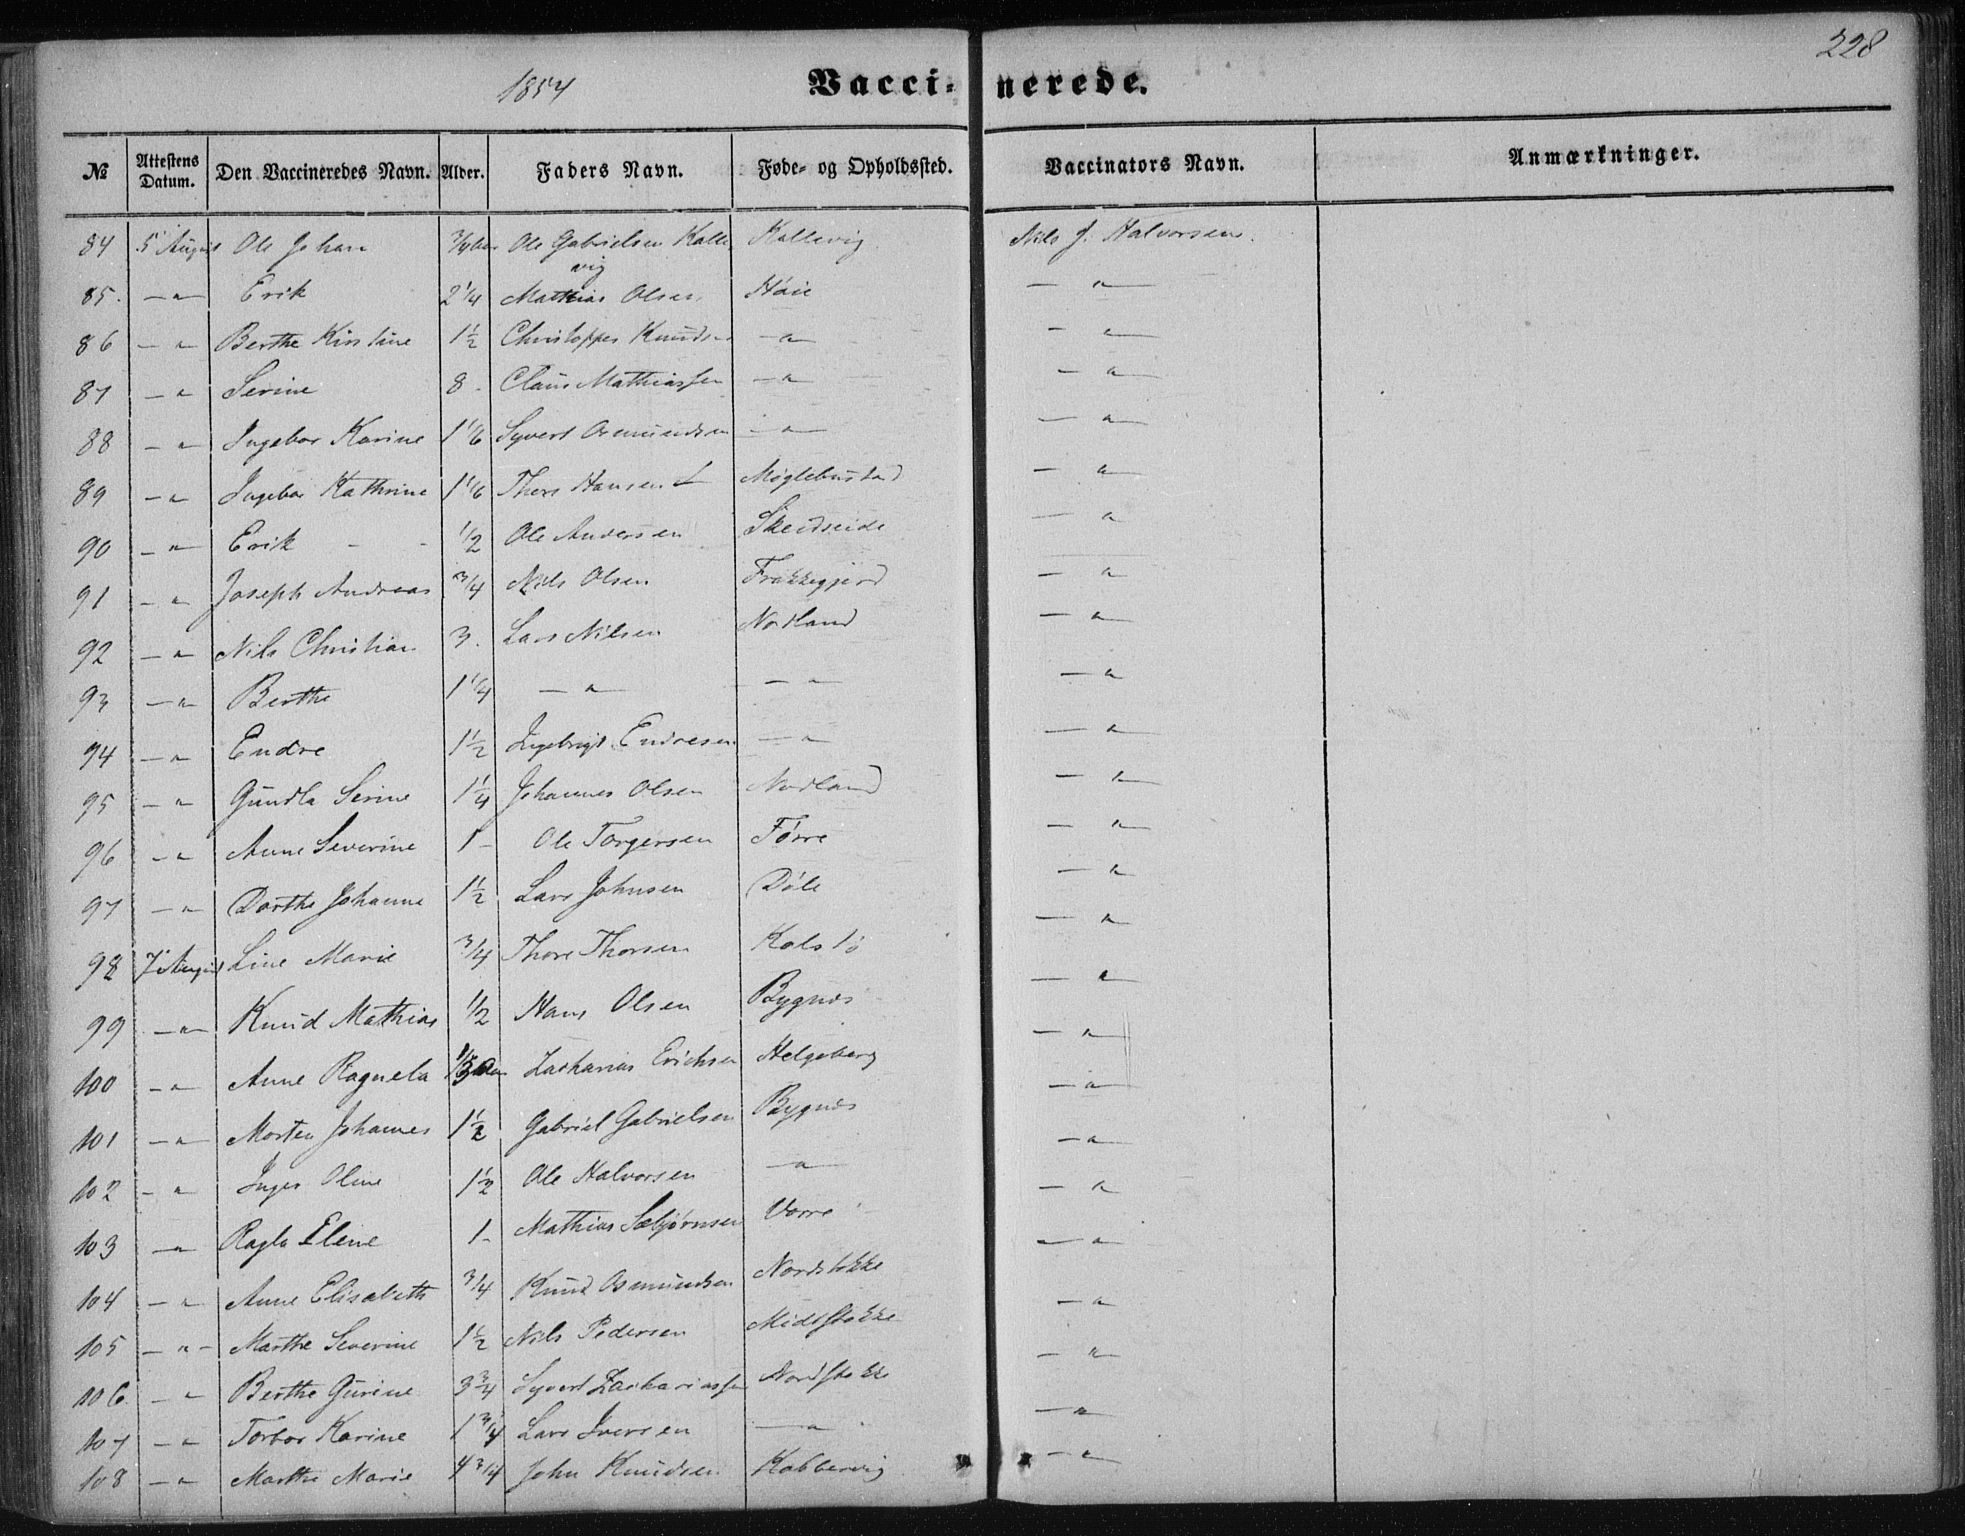 228
1854
Vacci- nerede.
№ Attestens Datum. Den Vaccineredes Navn. Alder. Faders Navn. Føde- og Opholdssted. Vaccinators Navn. Anmærkninger.
84 5 August Ole Johan 3/4 Aar Ole Gabrielsen Kallevig Kallevig Nils J. Halvorsen.
85. — " — Erik 2 1/4 Mathias Olsen Høie — " —
86 — " Berthe Kirstine 1 1/2 Christopher Knudsen — " — — " —
87 — " Serine 8 - Claus Mathiassen — " — — " —
88 — " Ingebor Karine 1 1/6 Syvert Osmundsen — " — — " —
89 — " Ingebor Kathrine 1 1/6 Thore Hansen Møglebustad — " —
90 — " — Erik 1/2 Ole Andersen Skeidseide — " —
91 — " Joseph Andreas 3/4 Nils Olsen Frakkegjerd — " —
92 — " Nils Christian 3. Lars Nilsen Nordland — " —
93 — " — Berthe 1 1/4 — " — — " — — " —
94 — " Endre 1 1/2 Ingebrigt Endresen — " — — " —
95 — " Gundla Serine 1 1/4 Johannes Olsen Nordland — " —
96 — " Anne Severine 1 - Ole Torgersen Førre — " —
97 — " — Dorthe Johanne 1 1/2 Lars Johnsen Døle — " —
98 7 August Line Marie 3/4 Thore Thorsen Kolstø — " —
99 — " — Knud Mathias 1/2 Hans Olsen Bygnes — " —
100 — " Anne Ragnela Zacharias Erichsen Helgeberg — " —
101 — " — Morten Johannes 1 1/2 Gabriel Gabrielsen Bygnes — " —
102 — " Inger Oline 1 1/2 Ole Halvorsen — " — — " —
103 — " Ragla Elene 1 - Mathias Sebjørnsen Vorre — " —
104 — " Anne Elisabeth 3/4 Knud Osmundsen Nordstokke — " —
105 — " - Marthe Severine 1 1/2 Nils Pedersen Midtstokke — " —
106. — " Berthe Gurine 3 3/4 Syvert Zachariassen Nordstokke — " —
107 — " Torbor Karine 1 3/4 Lars Iversen — " — — " —
108 — " Marthe Marie 4 3/4 John Knudsen Kobbervig — " —